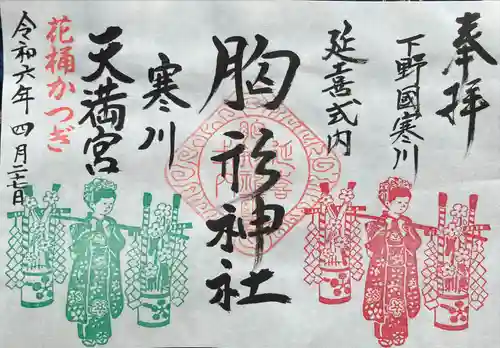 奉拝
下野國寒川
延喜式内
胸形神社
寒川
天満宮
花桶かつぎ
令和六年四月二十七日